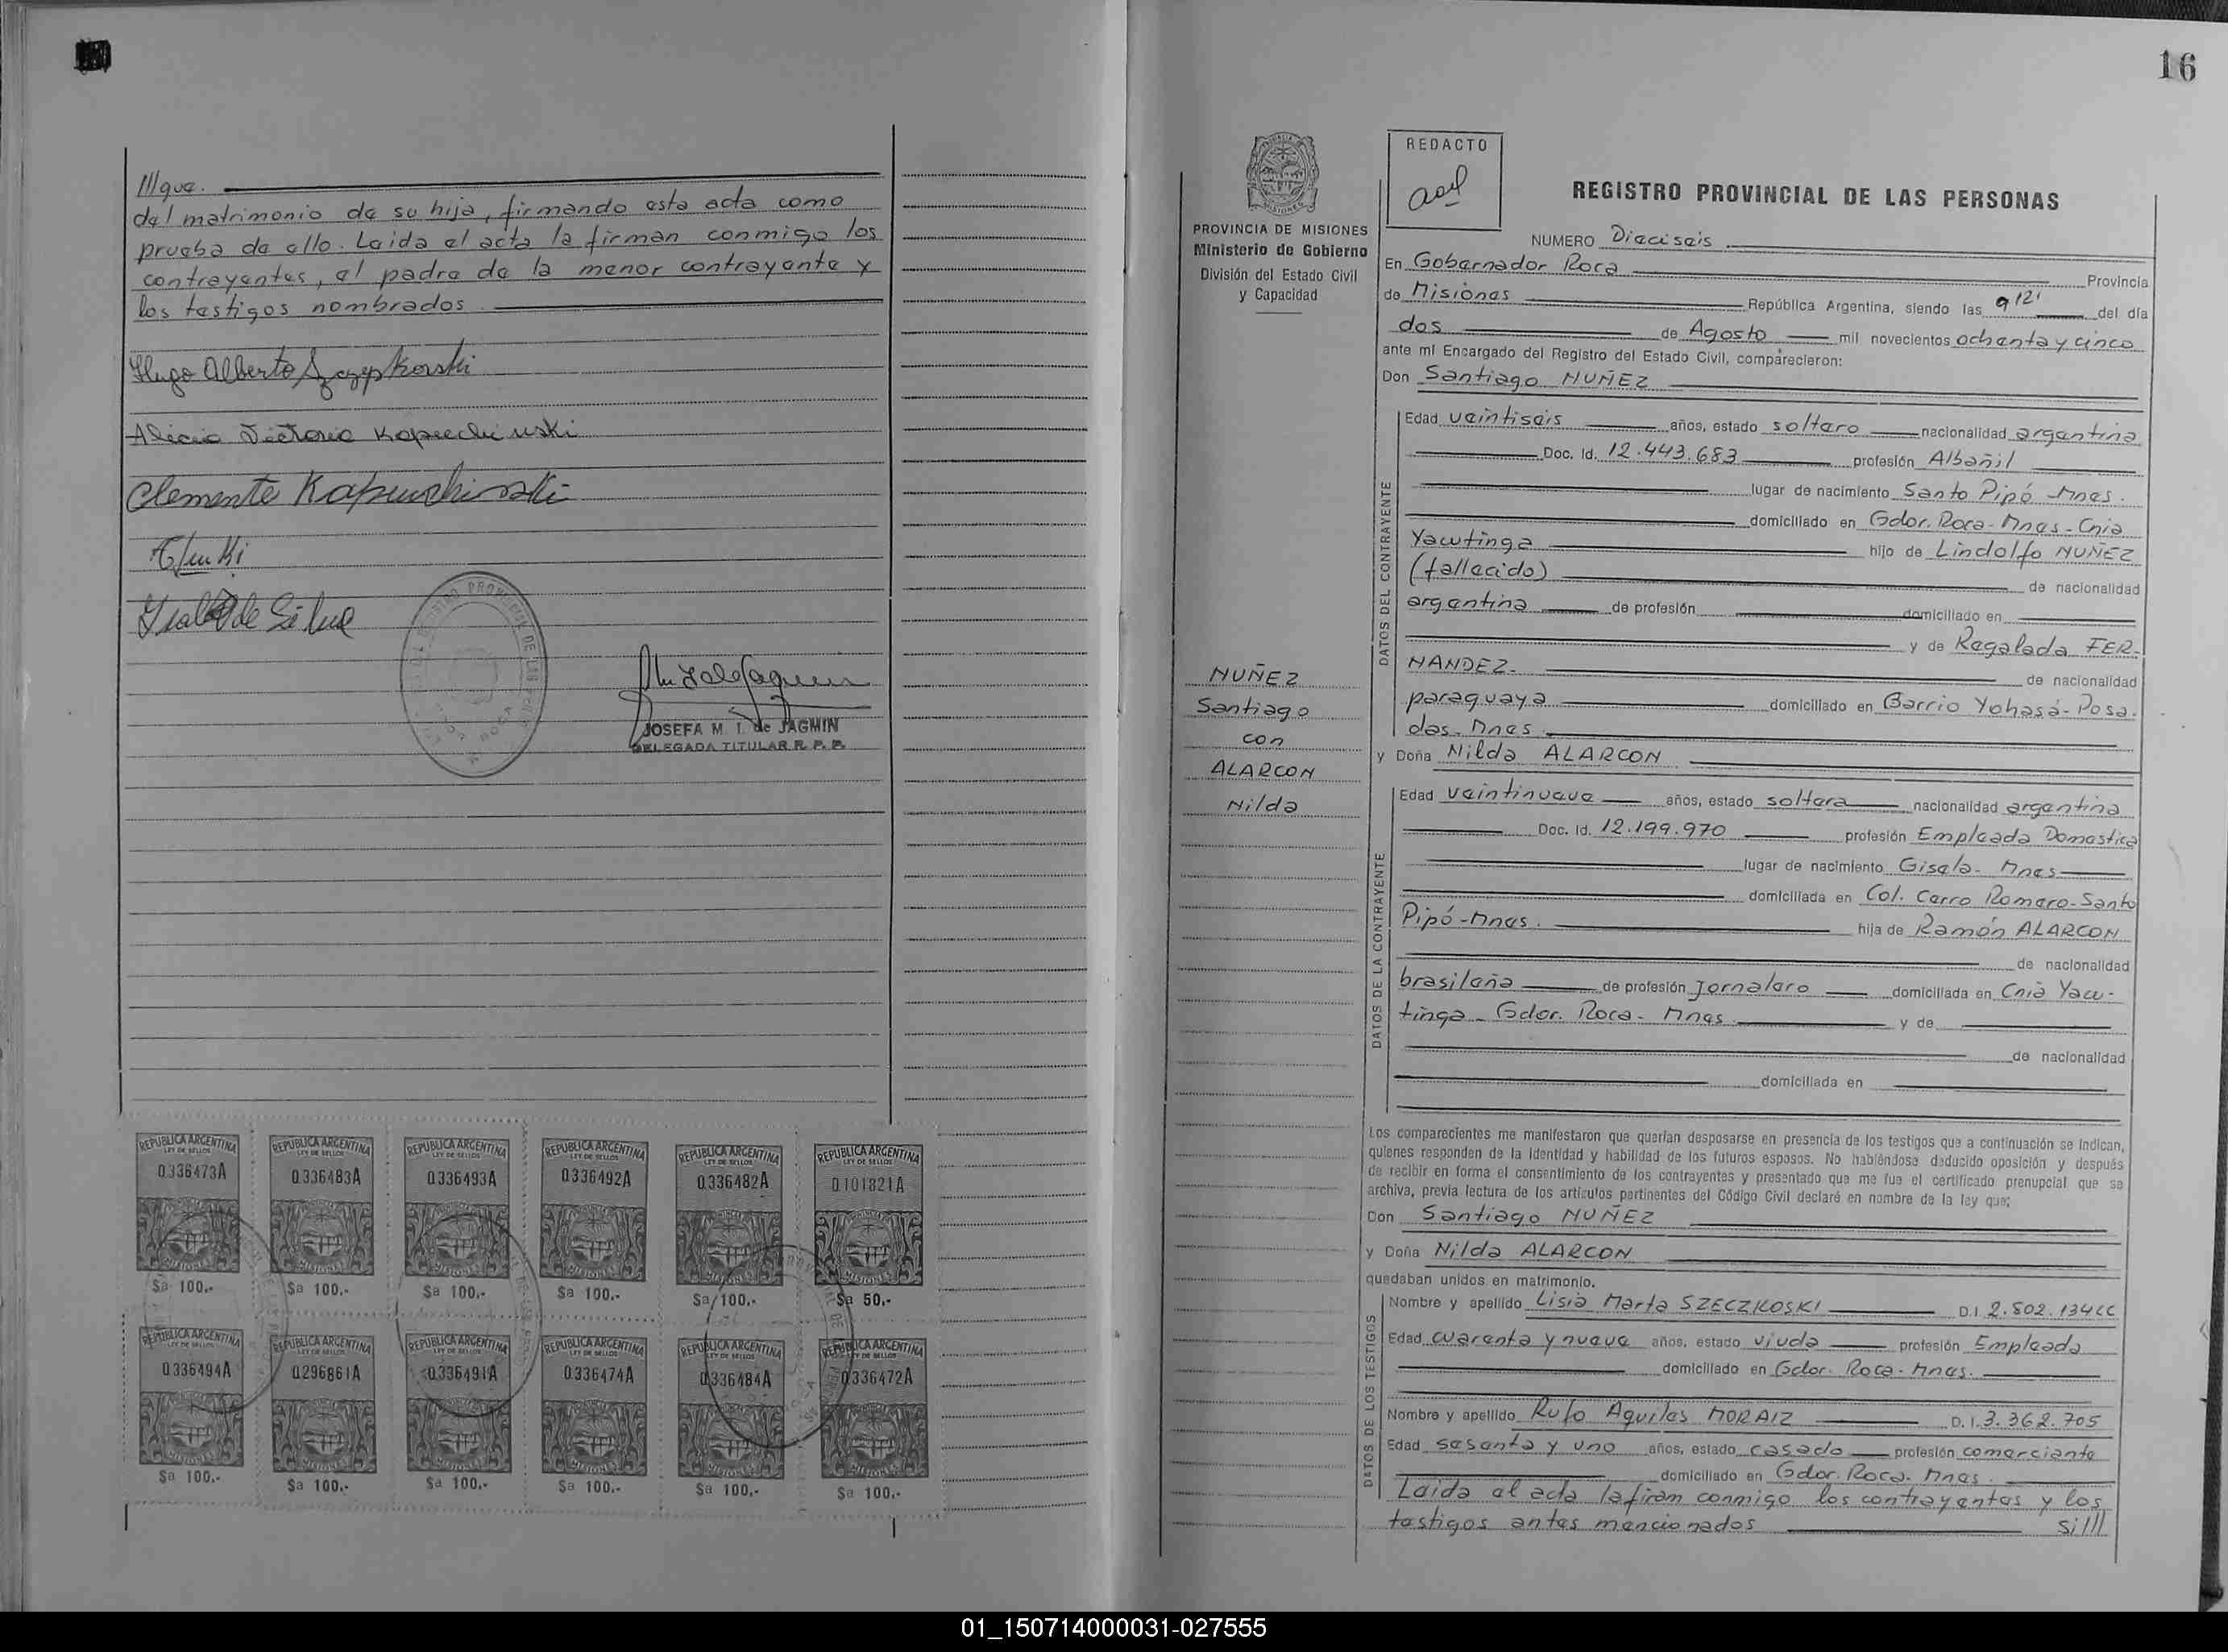 lllque.
del matrimonio de su hija, firmando esta acta como
prueba de ello. Leida el acta la firman conmigo los
contrayentes, el padre de la menor contrayente y
los testigos nombrados
Hugo Alberto Szczepkorski
Alicia Victoria Kopuchinski
Clemente Kapuchinski
de Silva
REGISTRO PROVINCIAL DE LAS
JOSEFA M. I. de JAGMIN
DELEGADA TITULAR R. P. P.
REPUBLICA ARGENTINA REPUBLICA ARGENTINA REPUBLICA ARGENTINA REPUBLICA ARGENTINA REPUBLICA ARGENTINA REPUBLICA ARGENTINA
LEY DE SELLOS LEY DE SELLOS LEY DE SELLOS LEY DE SELLOS LEY DE SELLOS LEY DE SELLOS
0336473A 0336483A 0336493A 0336492A 0336482A 0101821A
MISIONES MISIONES MISIONES MISIONES MISIONES MISIONES
$a 100.- $a 100.- $a 100.- $a 100.- $a 100.- $a 50.-
REPUBLICA ARGENTINA REPUBLICA ARGENTINA REPUBLICA ARGENTINA REPUBLICA ARGENTINA REPUBLICA ARGENTINA REPUBLICA ARGENTINA
LEY DE SELLOS LEY DE SELLOS LEY DE SELLOS LEY DE SELLOS LEY DE SELLOS LEY DE SELLOS
0336494A 0296861A 0336491A 0336474A 0336484A 0336472A
MISIONES MISIONES MISIONES MISIONES MISIONES MISIONES
$a 100.- $a 100.- $a 100.- $a 100.- $a 100.- $a 100.-
16
PROVINCIA DE MISIONES
Ministerio de Gobierno
División del Estado Civil
y Capacidad
REDACTO
REGISTRO PROVINCIAL DE LAS PERSONAS
NUMERO Dieciseis
En Gobernador Roca Provincia
de Misiones República Argentina, siendo las 9 12' del día
dos de Agosto mil novecientos ochenta y cinco
ante mí Encargado del Registro del Estado Civil, comparecieron:
Don Santiago NUÑEZ
DATOS DEL CONTRAYENTE
Edad veintiseis años, estado soltero nacionalidad argentina
Doc. Id. 12.443.683 profesión Albañil
lugar de nacimiento Santo Pipó Mnes.
domiciliado en Gdor. Roca-Mnes-Cnia
Yacutinga hijo de Lindolfo NUÑEZ
(fallecido) de nacionalidad
argentina de profesión domiciliado en
y de Regalada FER-
NANDEZ- de nacionalidad
paraguaya domiciliado en Barrio Yohasá-Posa-
das-Mnes
NUÑEZ
Santiago
con
ALARCON
Nilda
y Doña Nilda ALARCON
DATOS DE LA CONTRAYENTE
Edad veintinueve años, estado soltera nacionalidad argentina
Doc. Id. 12.199.970 profesión Empleada Domestica
lugar de nacimiento Gisela- Mnes
domiciliada en Col. Cerro Romero-Santo
Pipó-Mnes. hija de Ramón ALARCON
de nacionalidad
brasileña de profesión Jornalero domiciliada en Cnia Yacu-
tinga-Gdor. Roca- Mnes y de
de nacionalidad
domiciliada en
Los comparecientes me manifestaron que querían desposarse en presencia de los testigos que a continuación se indican,
quienes responden de la identidad y habilidad de los futuros esposos. No habiéndose deducido oposición y después
de recibir en forma el consentimiento de los contrayentes y presentado que me fue el certificado prenupcial que se
archiva, previa lectura de los artículos pertinentes del Código Civil declaré en nombre de la ley que;
Don Santiago NUÑEZ
y Doña Nilda ALARCON
quedaban unidos en matrimonio.
DATOS DE LOS TESTIGOS
Nombre y apellido Lisia Marta SZECZKOSKI D.I. 2.502.134 LC
Edad cuarenta y nueve años, estado viuda profesión Empleada
domiciliado en Gdor. Roca- Mnes.
Nombre y apellido Rufo Aquiles MORAIZ D.I. 3.362.705
Edad sesenta y uno años, estado casado profesión comerciante
domiciliado en Gdor. Roca. Mnes.
Leida el acta la firman conmigo los contrayentes y los
testigos antes mencionados silll
01_150714000031-027555